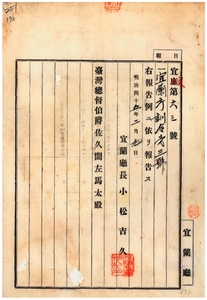 日報
宜庶第六三號
一宜蘭廳訓令第三號
右報告例ニ依リ報告ス
明治四十五年二月 日
宜蘭廳長小松吉久
臺灣總督伯爵佐久間左馬太殿
宜蘭廳